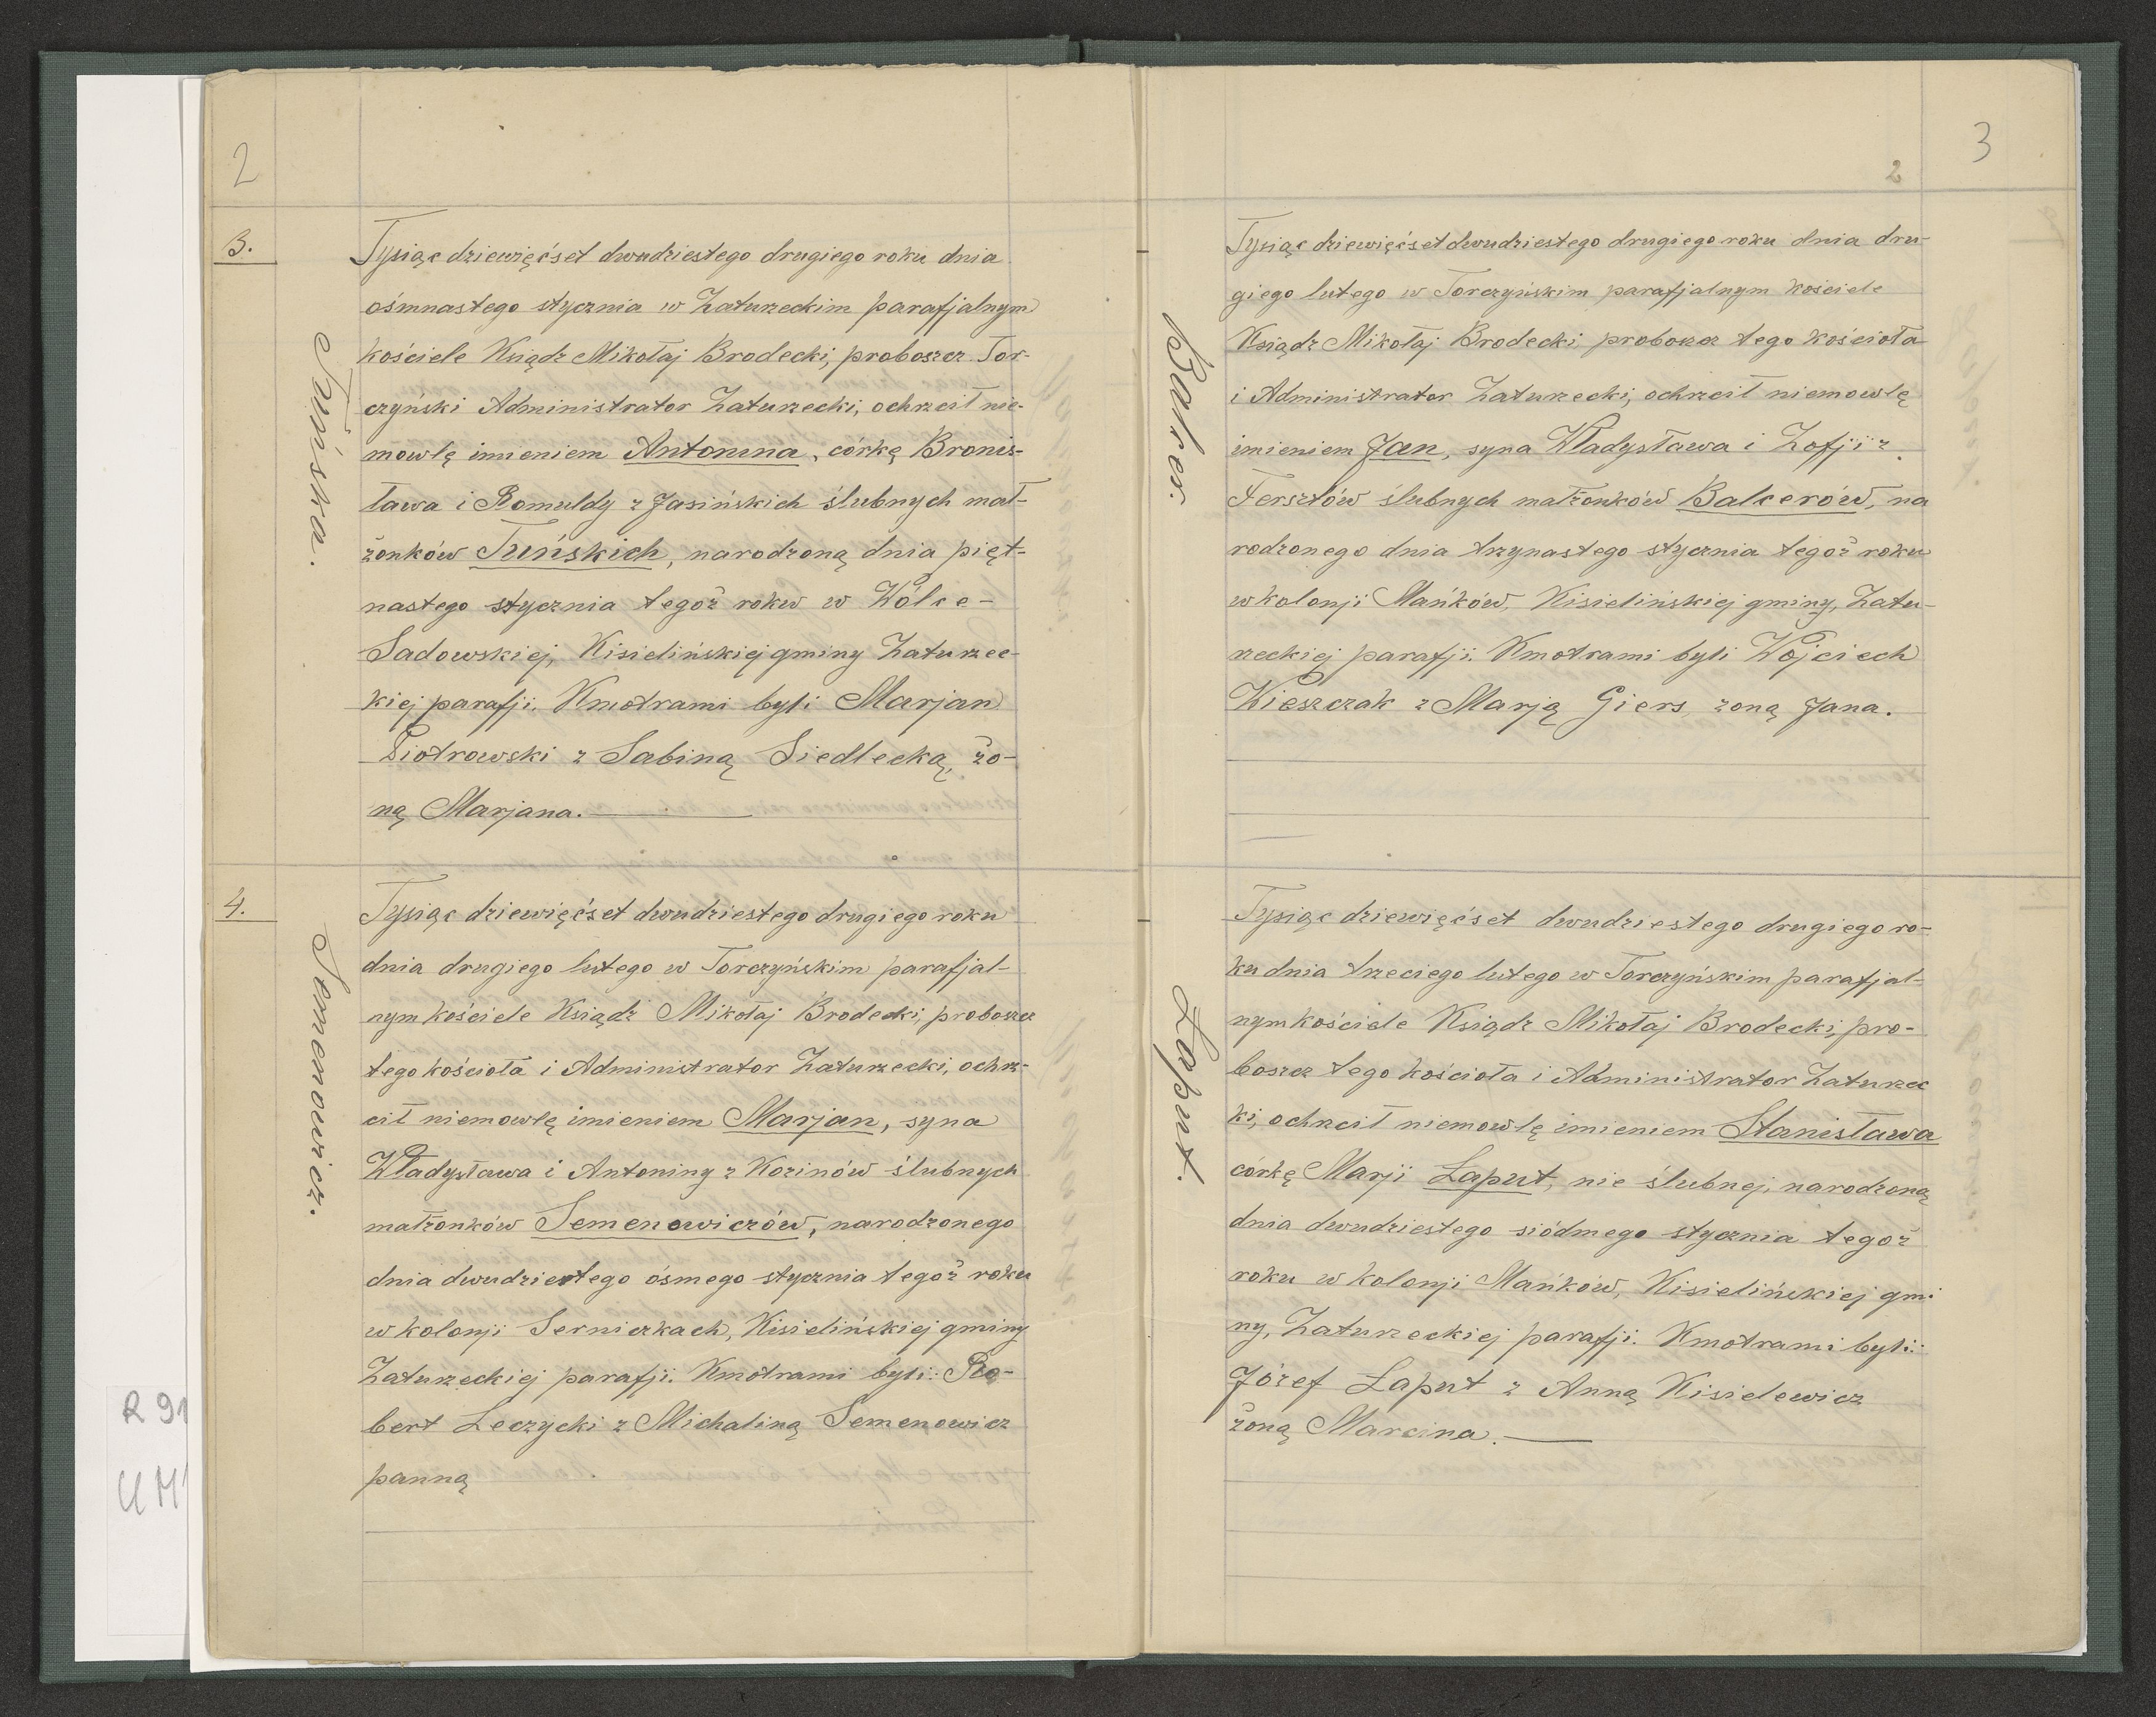 2
3.
Tuńska.
Tysiąc dziewięćset dwudziestego drugiego roku dnia
ośmnastego stycznia w Zaturzeckim parafjalnym
kościele Ksiądz Mikołaj Brodecki, proboszcz Tor-
czyński Administrator Zaturzecki, ochrzcił nie-
mowlę imieniem Antonina, córkę Bronis-
ława i Romuldy z Jasińskich ślubnych mał-
żonków Tuńskich, narodzoną dnia pięt-
nastego stycznia tegoż roku w Wólce-
Sadowskiej, Kisielińskiej gminy Zaturzec-
kiej parafji. Kmotrami byli Marjan
Piotrowski z Sabiną Siedlecką, żo-
ną Marjana.
4.
Semenowicz.
Tysiąc dziewięćset dwudziestego drugiego roku
dnia drugiego lutego w Torczyńskim parafjal-
nym kościele Ksiądz Mikołaj Brodecki, proboszcz
tego kościoła i Administrator Zaturzecki, ochrz-
cił niemowlę imieniem Marjan, syna
Władysława i Antoniny z Kozinów ślubnych
małżonków Semenowiczów, narodzonego
dnia dwudziestego ósmego stycznia tegoż roku
w kolonji Serniczkach, Kisielińskiej gminy
Zaturzeckiej parafji. Kmotrami byli: Ro-
bert Leczycki z Michaliną Semenowicz
panną
R 91
UM
3
2
Balcer.
Tysiąc dziewięćset dwudziestego drugiego roku dnia dru-
giego lutego w Torczyńskim parafjalnym kościele
Ksiądz Mikołaj Brodecki proboszcz tego kościoła
i Administrator Zaturzecki, ochrzcił niemowlę
imieniem Jan, syna Władysława i Zofji z
Fersztów ślubnych małżonków Balcerów, na
rodzonego dnia trzynastego stycznia tegoż roku
w kolonji Mańków, Kisielińskiej gminy, Zatu-
rzeckiej parafji. Kmotrami byli Wojciech
Wieszczak z Marją Giers żoną Jana.
Łaput.
Tysiąc dziewięćset dwudziestego drugiego ro-
ku dnia trzeciego lutego w Torczyńskim parafjal-
nym kościele Ksiądz Mikołaj Brodecki, pro-
boszcz tego kościoła i Administrator Zaturzec
ki, ochrzcił niemowlę imieniem Stanisława
córkę Marji Łaput, nie ślubnej, narodzoną
dnia dwudziestego siódmego stycznia tegoż
roku w kolonji Mańków, Kisielińskiej gmi
ny, Zaturzeckiej parafji. Kmotrami byli:
Józef Łaput z Anną Kisielewicz
żoną Marcina.